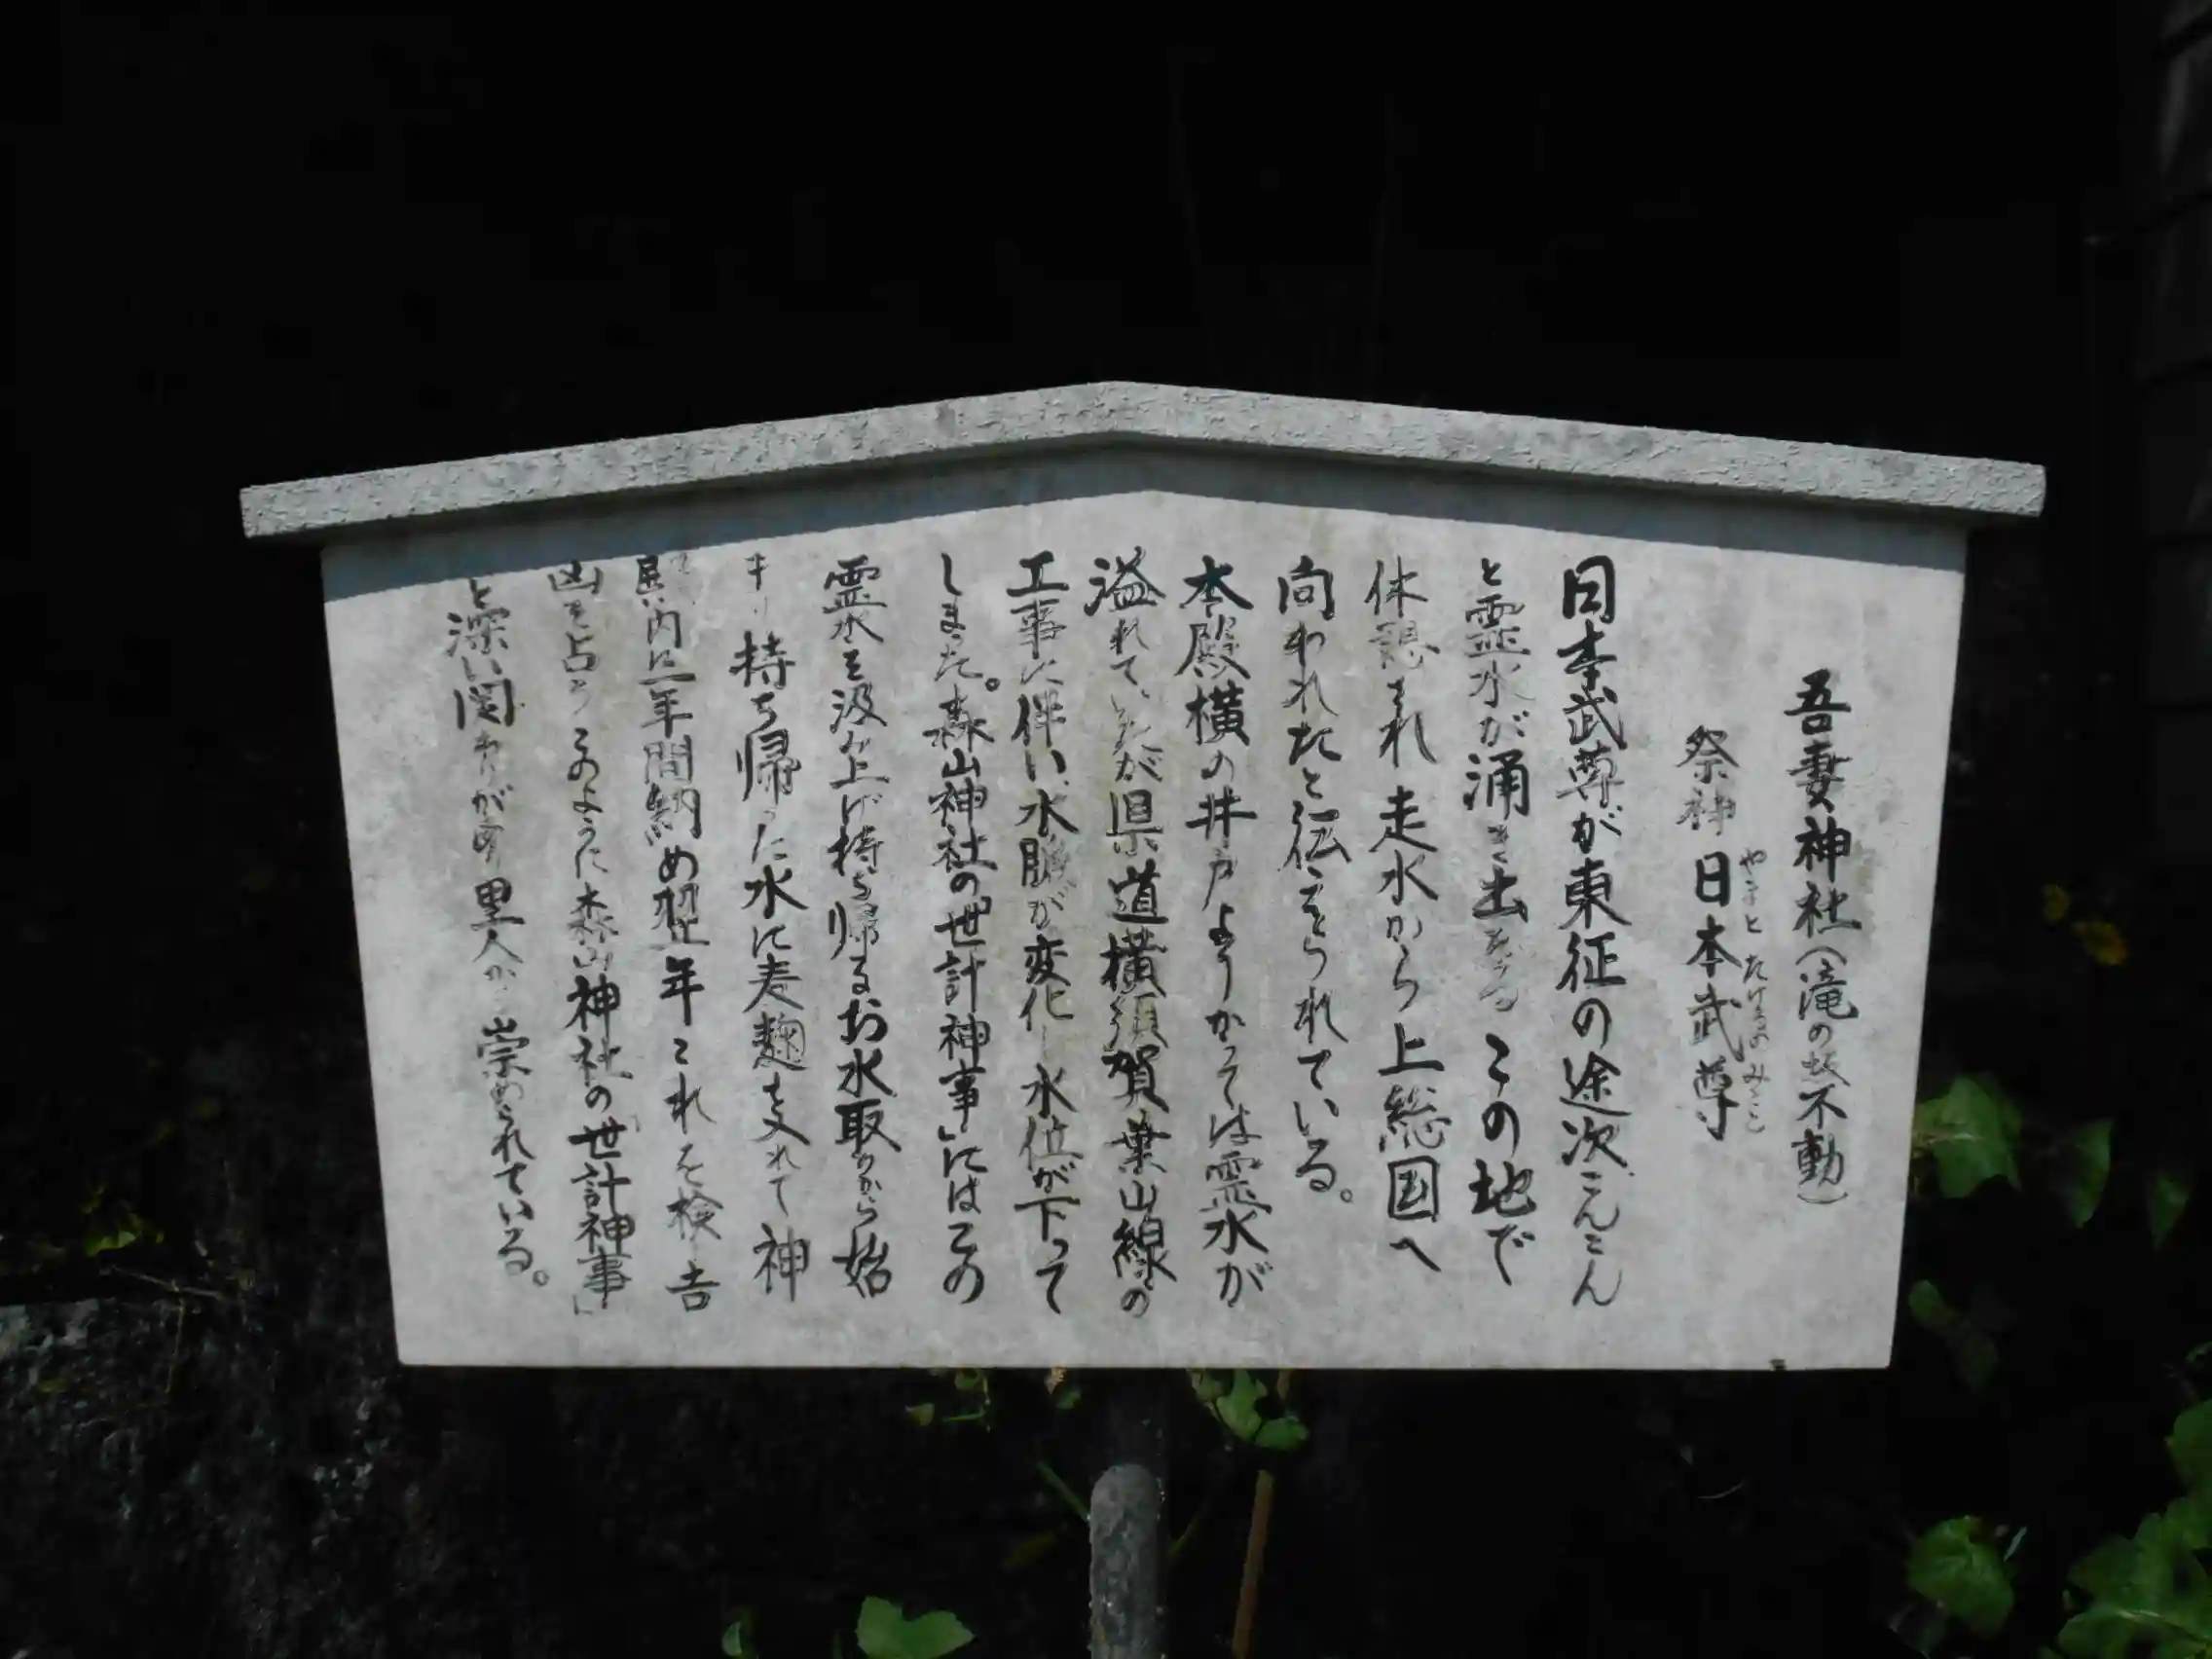 吾妻神社(滝の坂不動)
祭神 日本武尊
やまとたけるのみこと
日本武尊が東征の途次こんこん
と霊水が涌き出たる この地で
休憩され 走水から上総国へ
向われたと伝えられている。
本殿横の井戸よりかつては霊水が
溢れていたが県道横須賀葉山線の
工事に伴い、水脈が変化し水位が下って
しまった。森山神社の「世計神事」にはこの
霊水を汲み上げ持ち帰るお水取りから始
まり 持ち帰った水に麦麹を入れて 神
殿内に一年間納め翌年これを検し吉
凶を占う このように森山神社の「世計神事」
と深い関わりがあり 里人から崇められている。